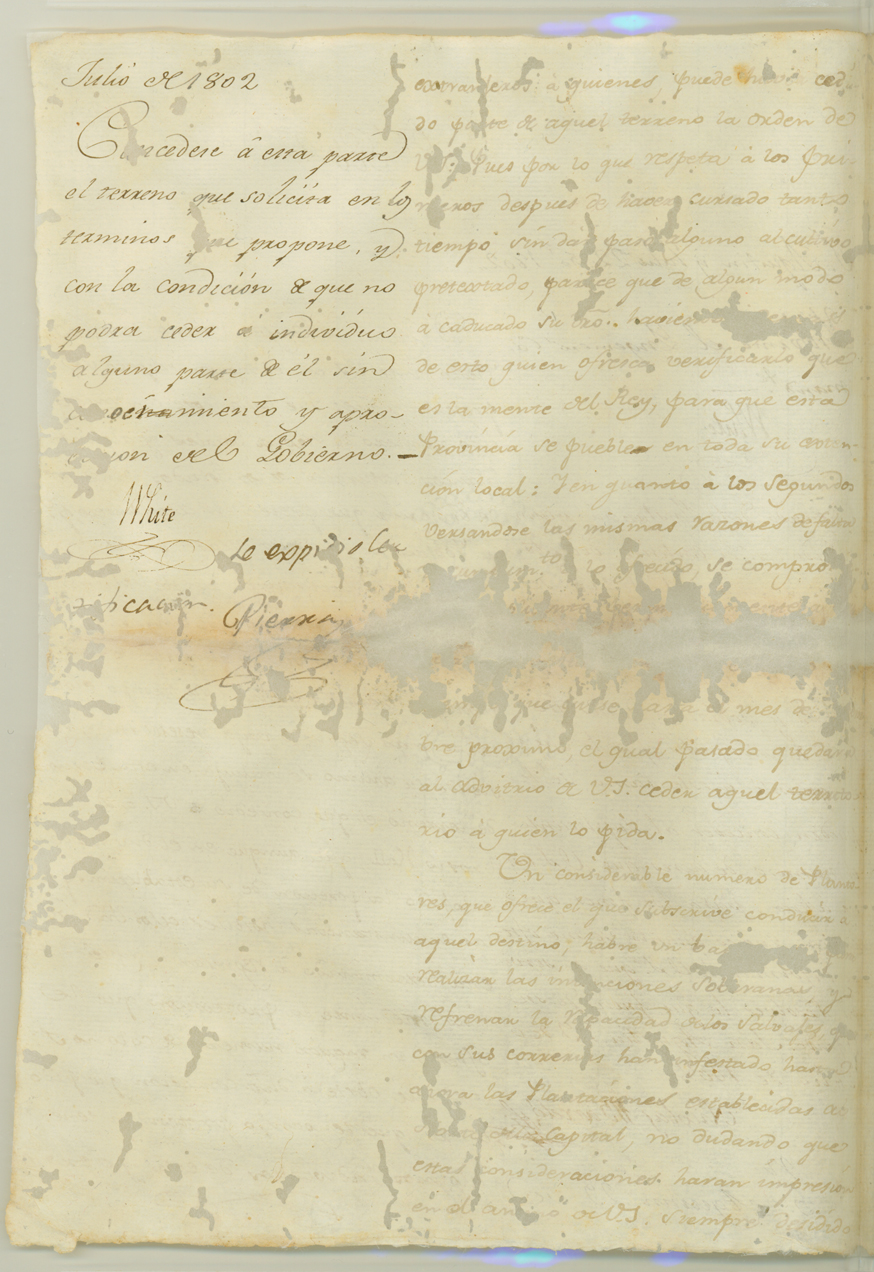 Julio de 1802
Concedese á esta parte
el terreno que solicita en los
terminos que propone, y
con la condición de que no
podra ceder á individuo
alguno parte de él sin
conocimiento y apro-
vacion del Gobierno.
White
Se expidio la
tificacion.
Pierra
extranjeros á quienes, puede haver cedi-
do parte de aquel terreno la orden de
V.S. Pues por lo que respeta á los pri-
meros despues de haver cursado tanto
tiempo sin dar paso alguno al cultivo
pretextado, parece que de algun modo
á caducado su dro.. haviendo
de esto quien ofresca verificarlo que
es la mente del Rey, para que esta
Provincia se pueble en toda su exten-
ción local: Y en quanto á los segundos
versandose las mismas razones de falta
lo ofrecido, se compro
el mes de
bre proximo, el qual pasado quedara
al advitrio de V.S. ceder aquel territo-
rio á quien lo pida.
Un considerable numero de
res, que ofrece el que subscrive conducir á
aquel destino, habre un
realizar las intenciones soberanas, y
refrenar la rapacidad de los Salvajes, que
con sus correrias han infestado, hasta
ahora las Plantaciones establecidas al
de la Capital, no dudando que
estas consideraciones haran impresión
en el animo de V.S. siempre decidido